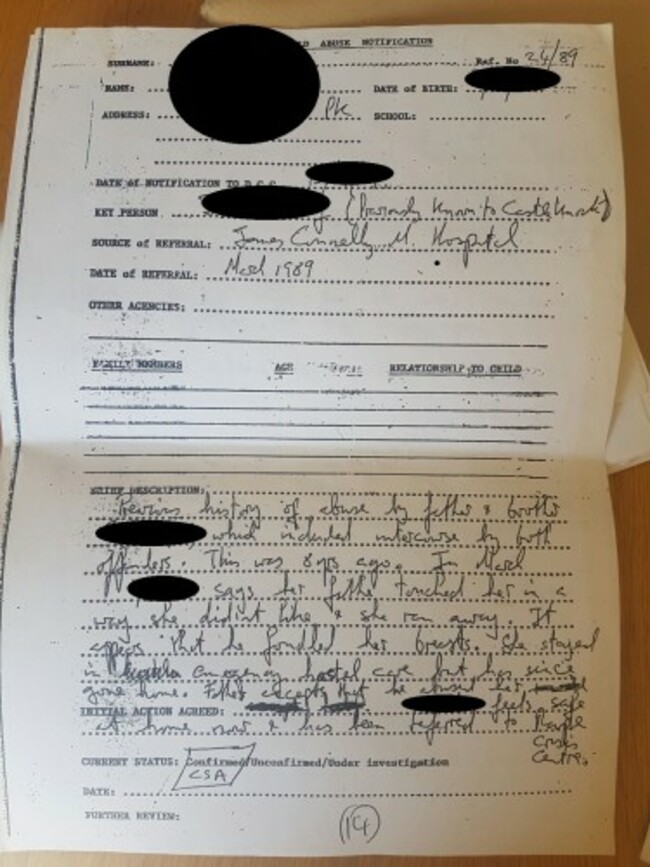 ABUSE NOTIFICATION
SURNAME: Ref. No 24/89
NAME: DATE OF BIRTH:
ADDRESS: Pk SCHOOL:
DATE of NOTIFICATION TO D.C.C.
KEY PERSON (Previously known to Castleknock)
SOURCE of REFERRAL: James Connolly M. Hospital
DATE of REFERRAL: March 1989
OTHER AGENCIES:
FAMILY MEMBERS AGE RELATIONSHIP TO CHILD
BRIEF DESCRIPTION:
Previous history of abuse by father & brother
which included intercourse by both
offenders. This was 8 yrs ago. In March
says her father touched her in a
way she didn't like & she ran away. It
appears that he fondled her breasts. She stayed
in emergency hostel care but has since
gone home. Father accepts that he abused her
INITIAL ACTION AGREED: feels safe
at home now & has been referred to Rape
Crisis
Centre.
CURRENT STATUS: Confirmed/Unconfirmed/Under investigation
CSA
DATE:
FURTHER REVIEW: